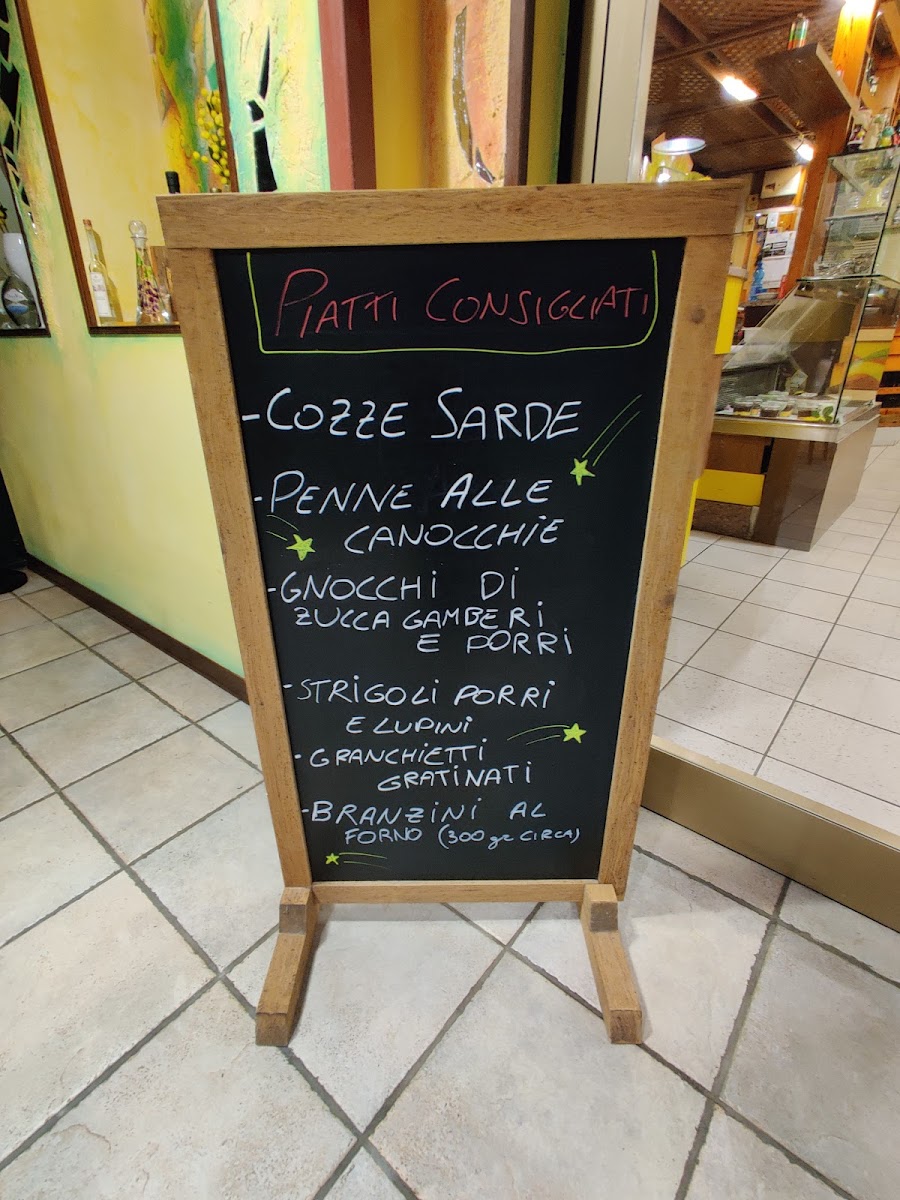 PIATTI CONSIGLIATI
- COZZE SARDE
- PENNE ALLE
CANOCCHIE
- GNOCCHI DI
ZUCCA GAMBERI
E PORRI
- STRIGOLI PORRI
E LUPINI
- GRANCHIETTI
GRATINATI
- BRANZINI AL
FORNO (300 gr CIRCA)